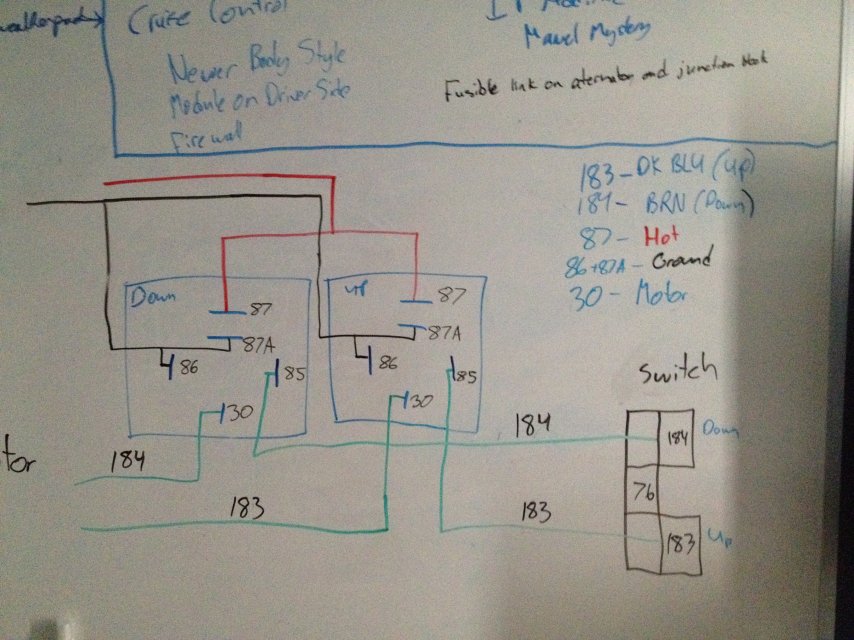 Cruze Control
Newer Body Style
Module on Driver Side
Firewall
Mystery
Fusible link on aternator and junction block
183 - DK BLU (Up)
184 - BRN (Down)
87 - Hot
86+87A - Ground
30 - Motor
Down
87
87A
86
85
30
up
87
87A
86
85
30
Switch
184
Down
76
183
Up
184
183
tor
184
183